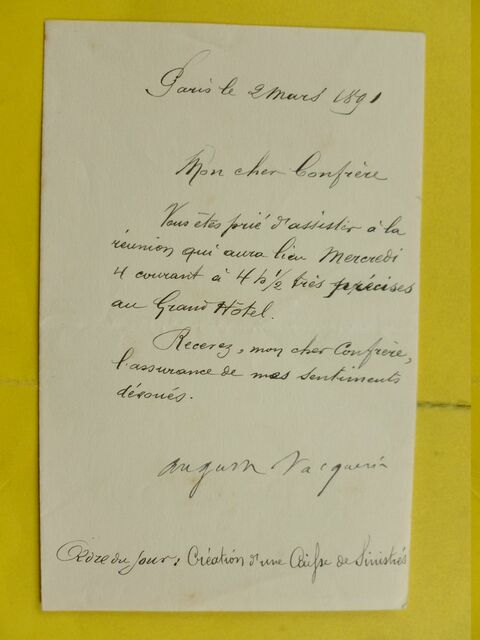 Paris le 2 Mars 1891
Mon cher Confrère
Vous êtes prié d'assister à la
réunion qui aura lieu Mercredi
4 courant à 4 h ½ très précises
au Grand Hôtel.
Recevez, mon cher Confrère,
l'assurance de mes sentiments
dévoués.
Auguste Vacquerie
Ordre du jour : Création d'une Caisse de Sinistrés